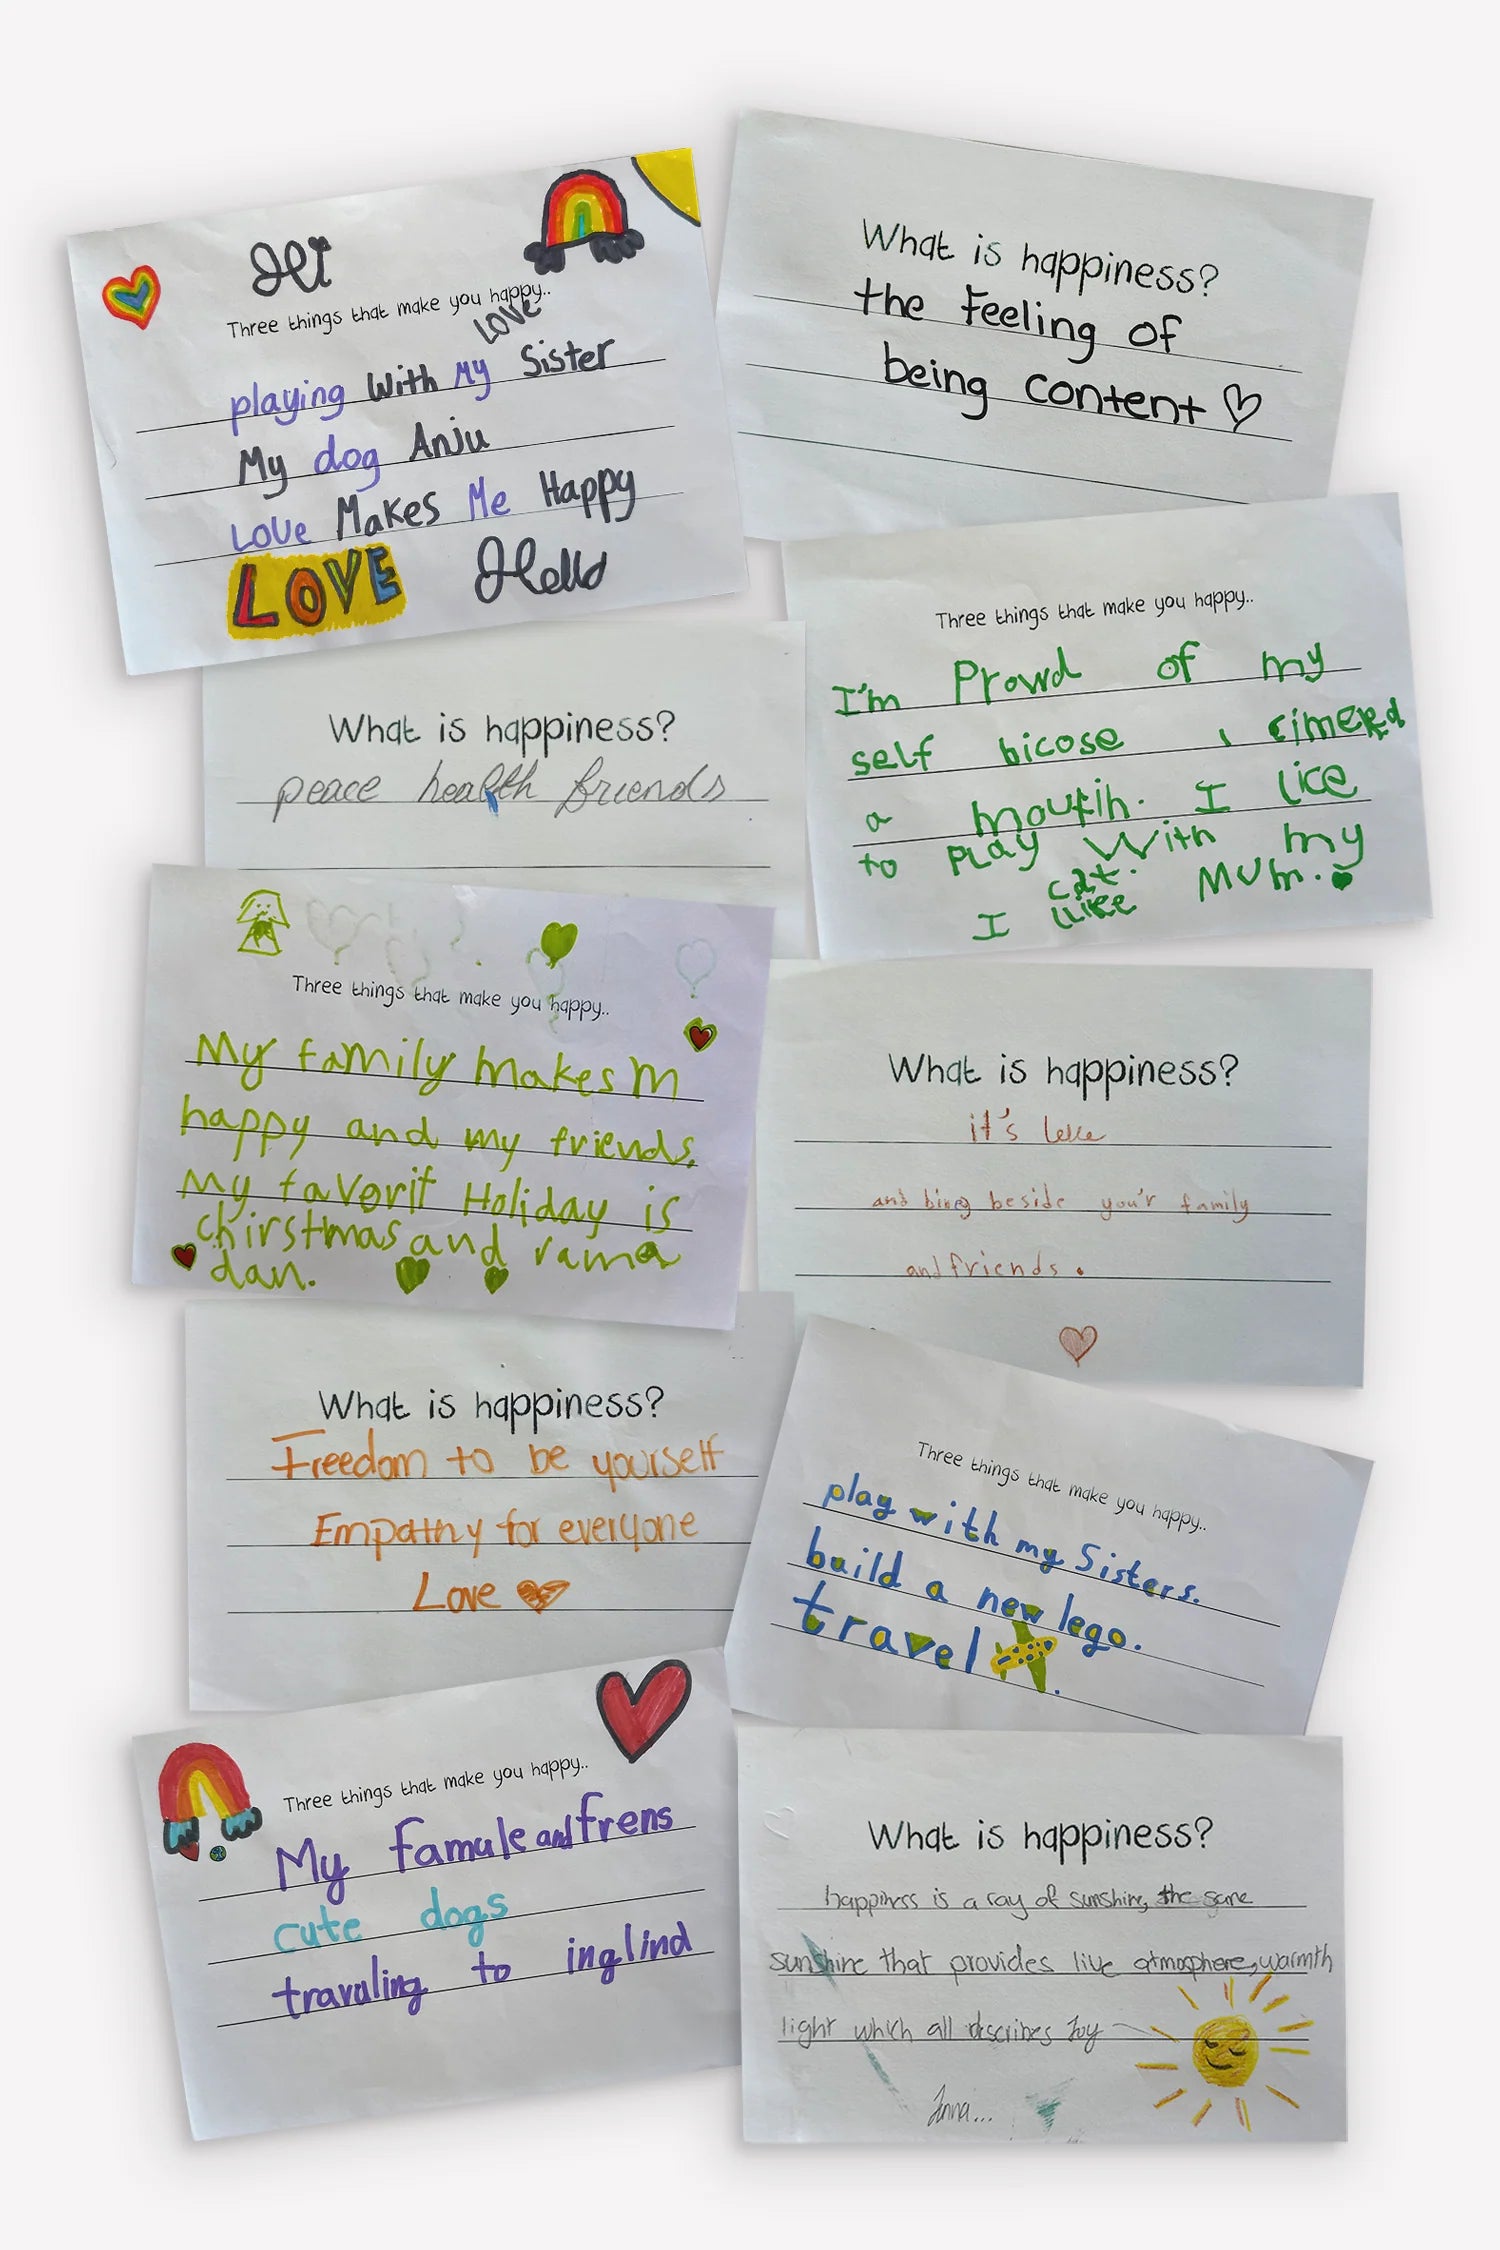 Hi
Three things that make you happy..
LOVE
playing With My Sister
My dog Anju
LOVE Makes Me Happy
LOVE Hello
What is happiness?
the Feeling of
being content
What is happiness?
peace health friends
Three things that make you happy..
I'm Prowd of my
self bicose i
a mouTih. I lice
to PLay With my
cat.
I Like MUM.
Three things that make you happy..
My family makes M
happy and my friends.
My favorit Holiday is
chirstmas and rama
dan.
What is happiness?
it's love
and bieng beside you'r family
and friends.
What is happiness?
Freedom to be yourself
Empathy for everyone
Love
Three things that make you happy..
play with my Sisters.
build a new lego.
travel .
Three things that make you happy..
My famule and frens
cute dogs
travuling to inglind
What is happiness?
happiness is a ray of sunshine, the same
sunshine that provides live atmosphere, warmth
light which all describes Joy